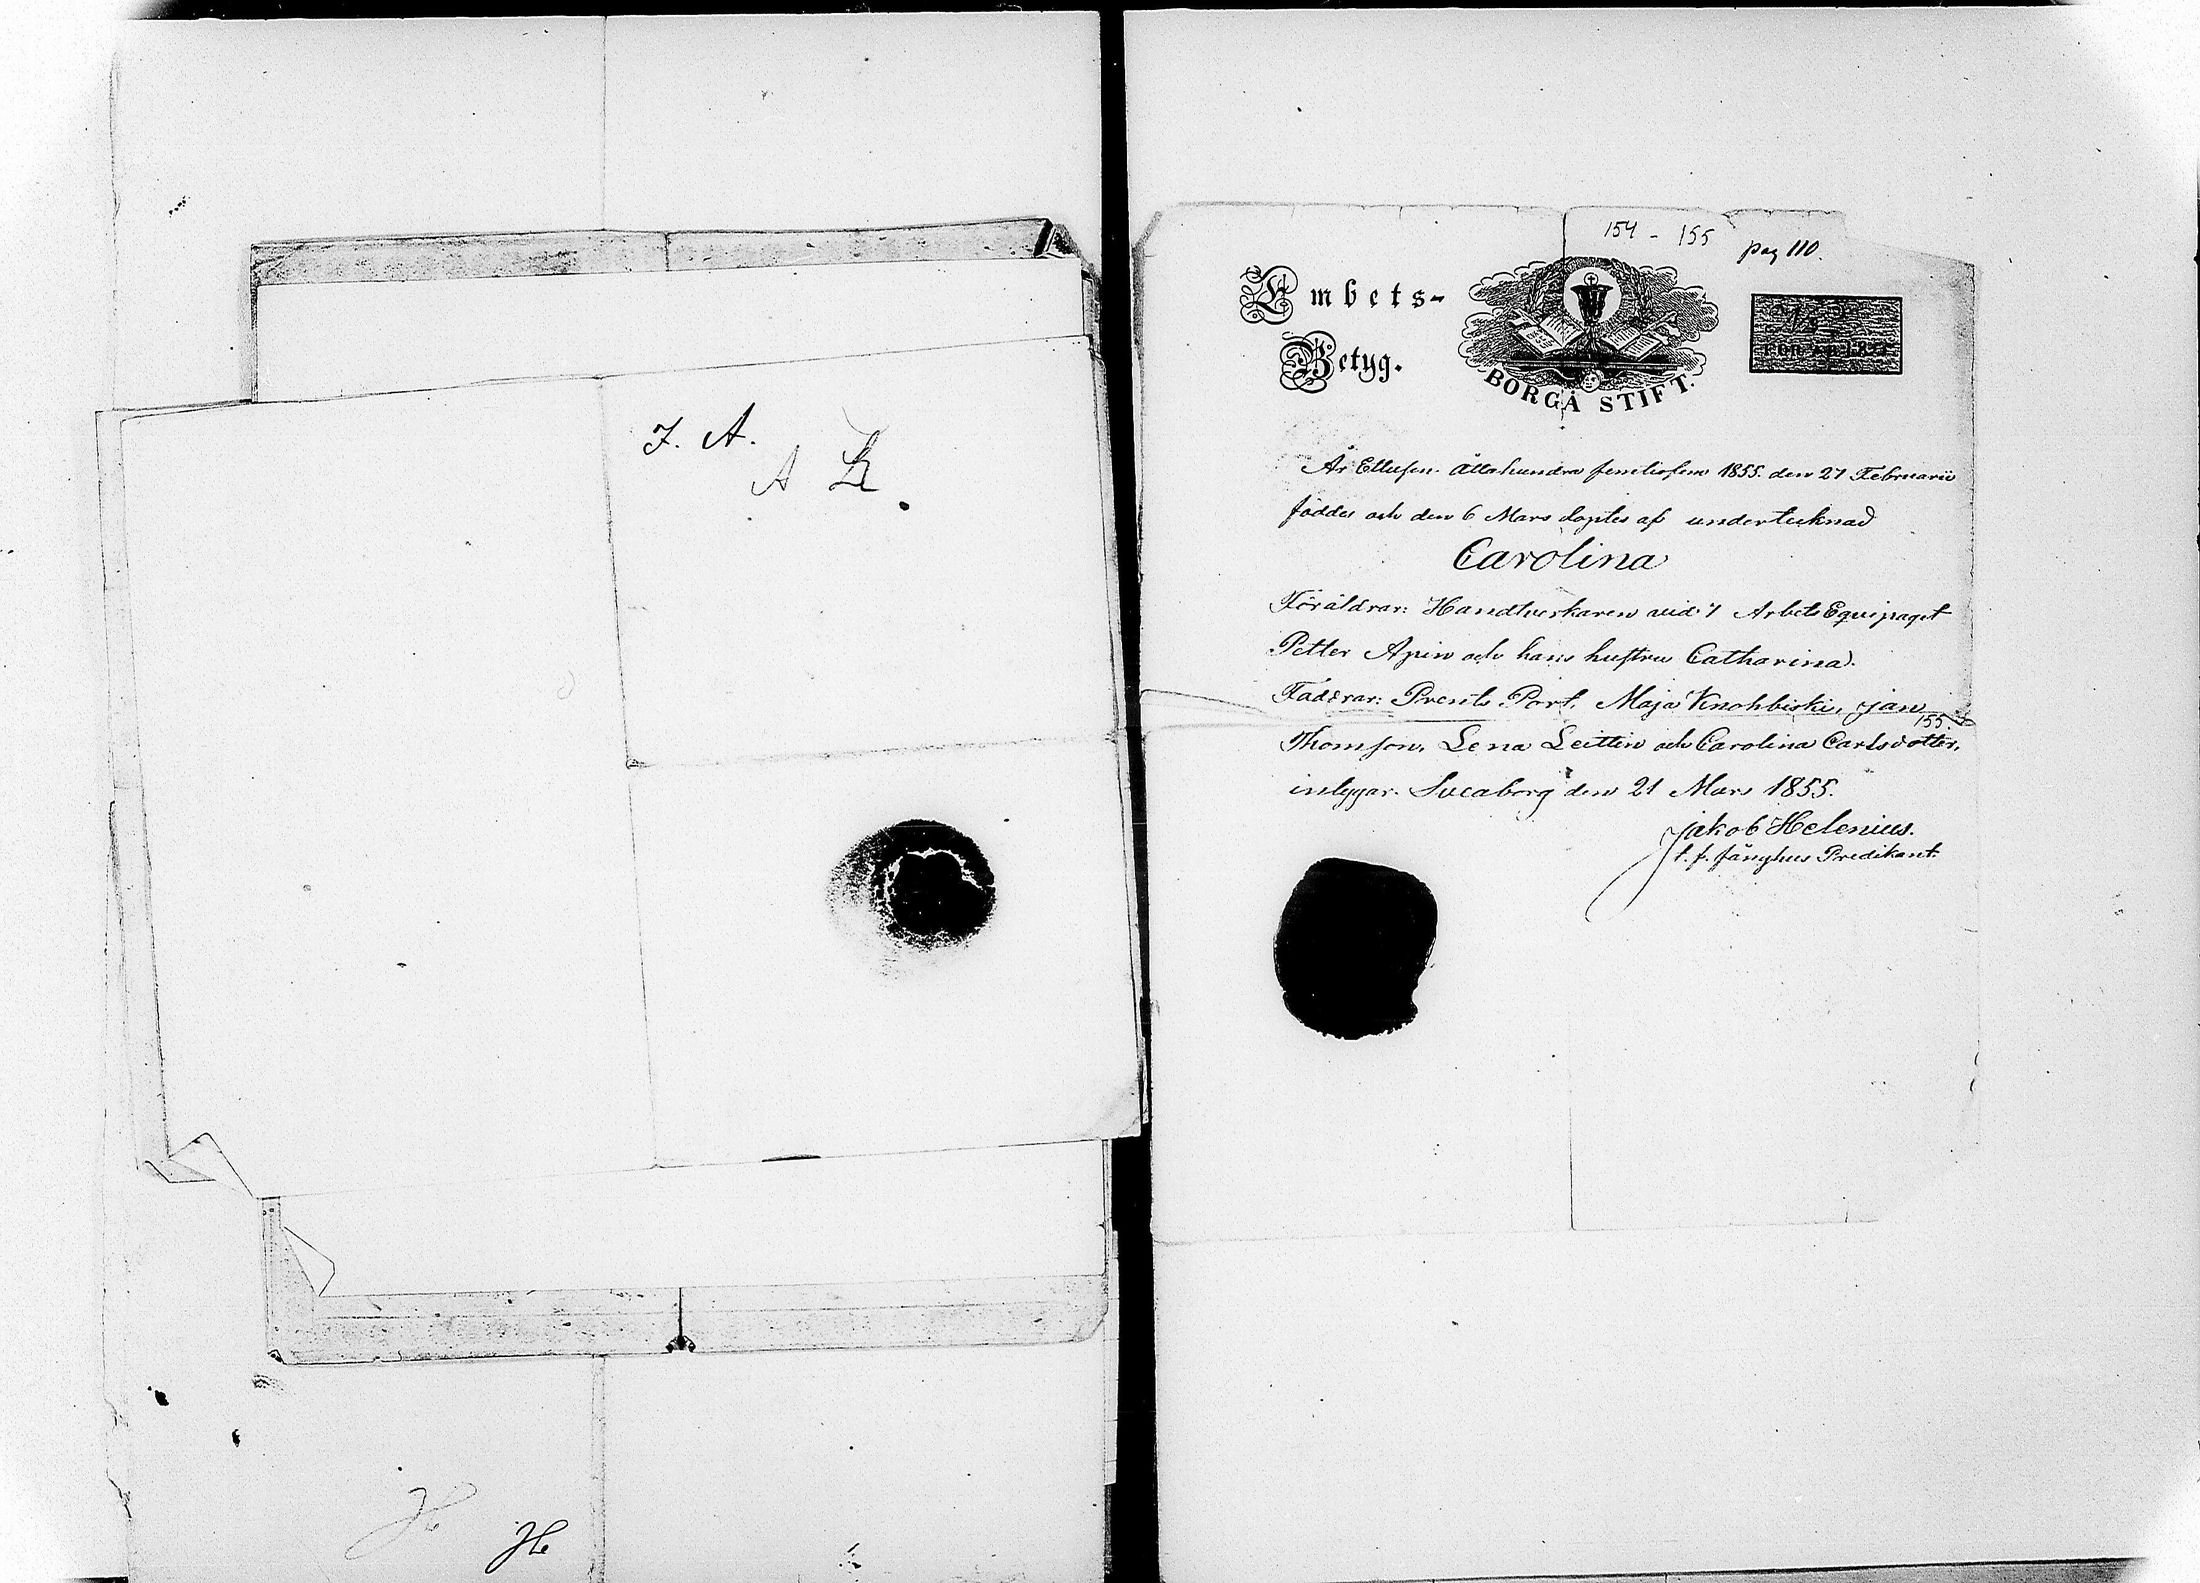 J. A.
A
He
He
154 - 155
pag 110.
Embets-
Betyg.
BORGÅ STIFT.
År Ettusen Åttahundra femtiofem 1855. den 27 Februarii
föddes och den 6 Mars döptes af undertecknad
Carolina
Föräldrar: Handtverkaren vid 1 Arbets Equipaget
Petter Apin och hans hustru Catharina.
Faddrar: Maja Jan
155.
Thomson, Lena och Carolina Carlsdotter,
intygar. Sveaborg den 21 Mars 1855.
Jakob Helenius.
t. f. fänghus Predikant.